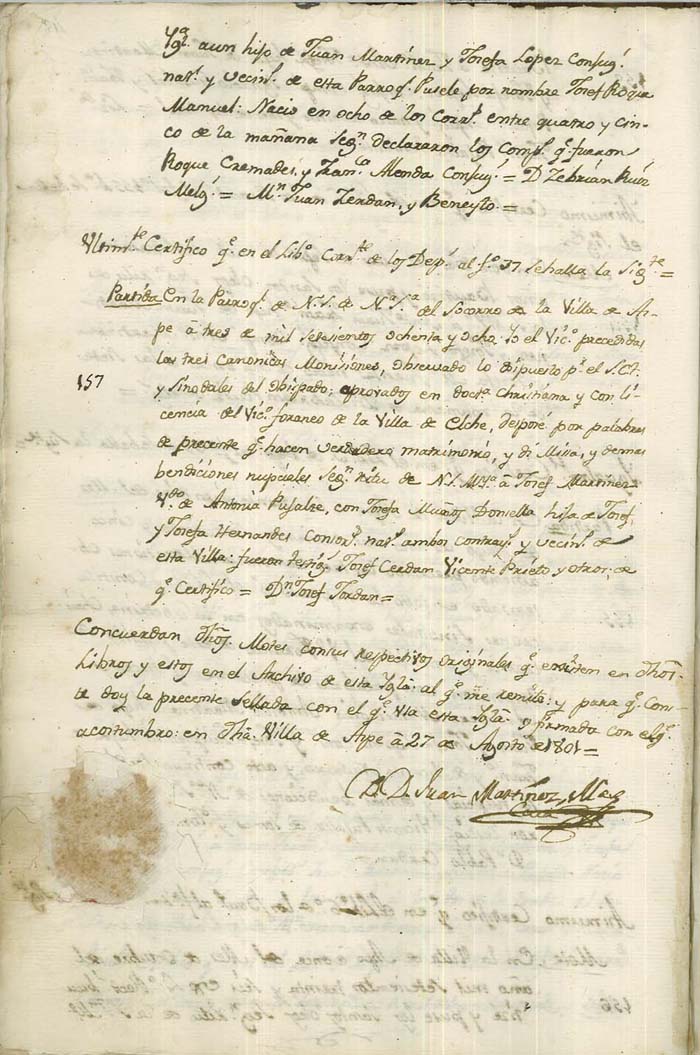 Ygª. aun hijo de Juan Martinez y Josefa Lopez Consug.
nat.s y vecin.s de esta Parroq. Pusele por nombre Josef Roque
Manuel: Nacio en ocho de los Corr.tes entre quatro y cin-
co de la mañana seg.n declararon los Comp.s q.e fueron
Roque Cremades, y Fran.ca Menda Consug.s = D. Zebrian Ruiz
Melg.s = M.n Juan Zerdan, y Beneyto. =
Ultim.te Certifico q.e en el Lib.o Corr.te de los Desp.s al f.o 37 se halla la sig.te =
Partida En la Parroq. de N.S. de N.ª S.ª del Socorro de la Villa de As-
pe á tres de mil setesientos ochenta y ocho: Yo el Vic.o precedidas
las tres Canonicas Monisiones, observado lo dispuesto p.r el S.C.T.
157
y Sinodales del Obispado; aprovados en doct.a Christiana y con li-
cencia del Vic.o foraneo de la Villa de Elche, desposé por palabras
de precente q.e hacen verdadero matrimonio, y di Misa, y demas
bendiciones nupciales seg.n ritu de N.S. M.Yg.ª á Josef Martinez
V.do de Antonia Pujalte, con Josefa Muños Donsella hija de Josef,
y Josefa Hernandes Consor.s nat.s ambos contray.s y vecin.s de
esta Villa: fueron testig.s Josef Cerdan Vicente Prieto, y otros; de
q.e Certifico = D.n Josef Jordan =
Concuerdan dhos. Motes con sus respectivos originales q.e existen en dhos.
Libros y estos en el Archivo de esta Yglª. al q.e me remito: y para q.e cons-
te doy la precente sellada con el q.e usa esta Yglª. y firmada con el q.e
acostumbro: en dha. Villa de Aspe á 27 de Agosto de 1801 =
D. D. Juan Martinez,
Cura